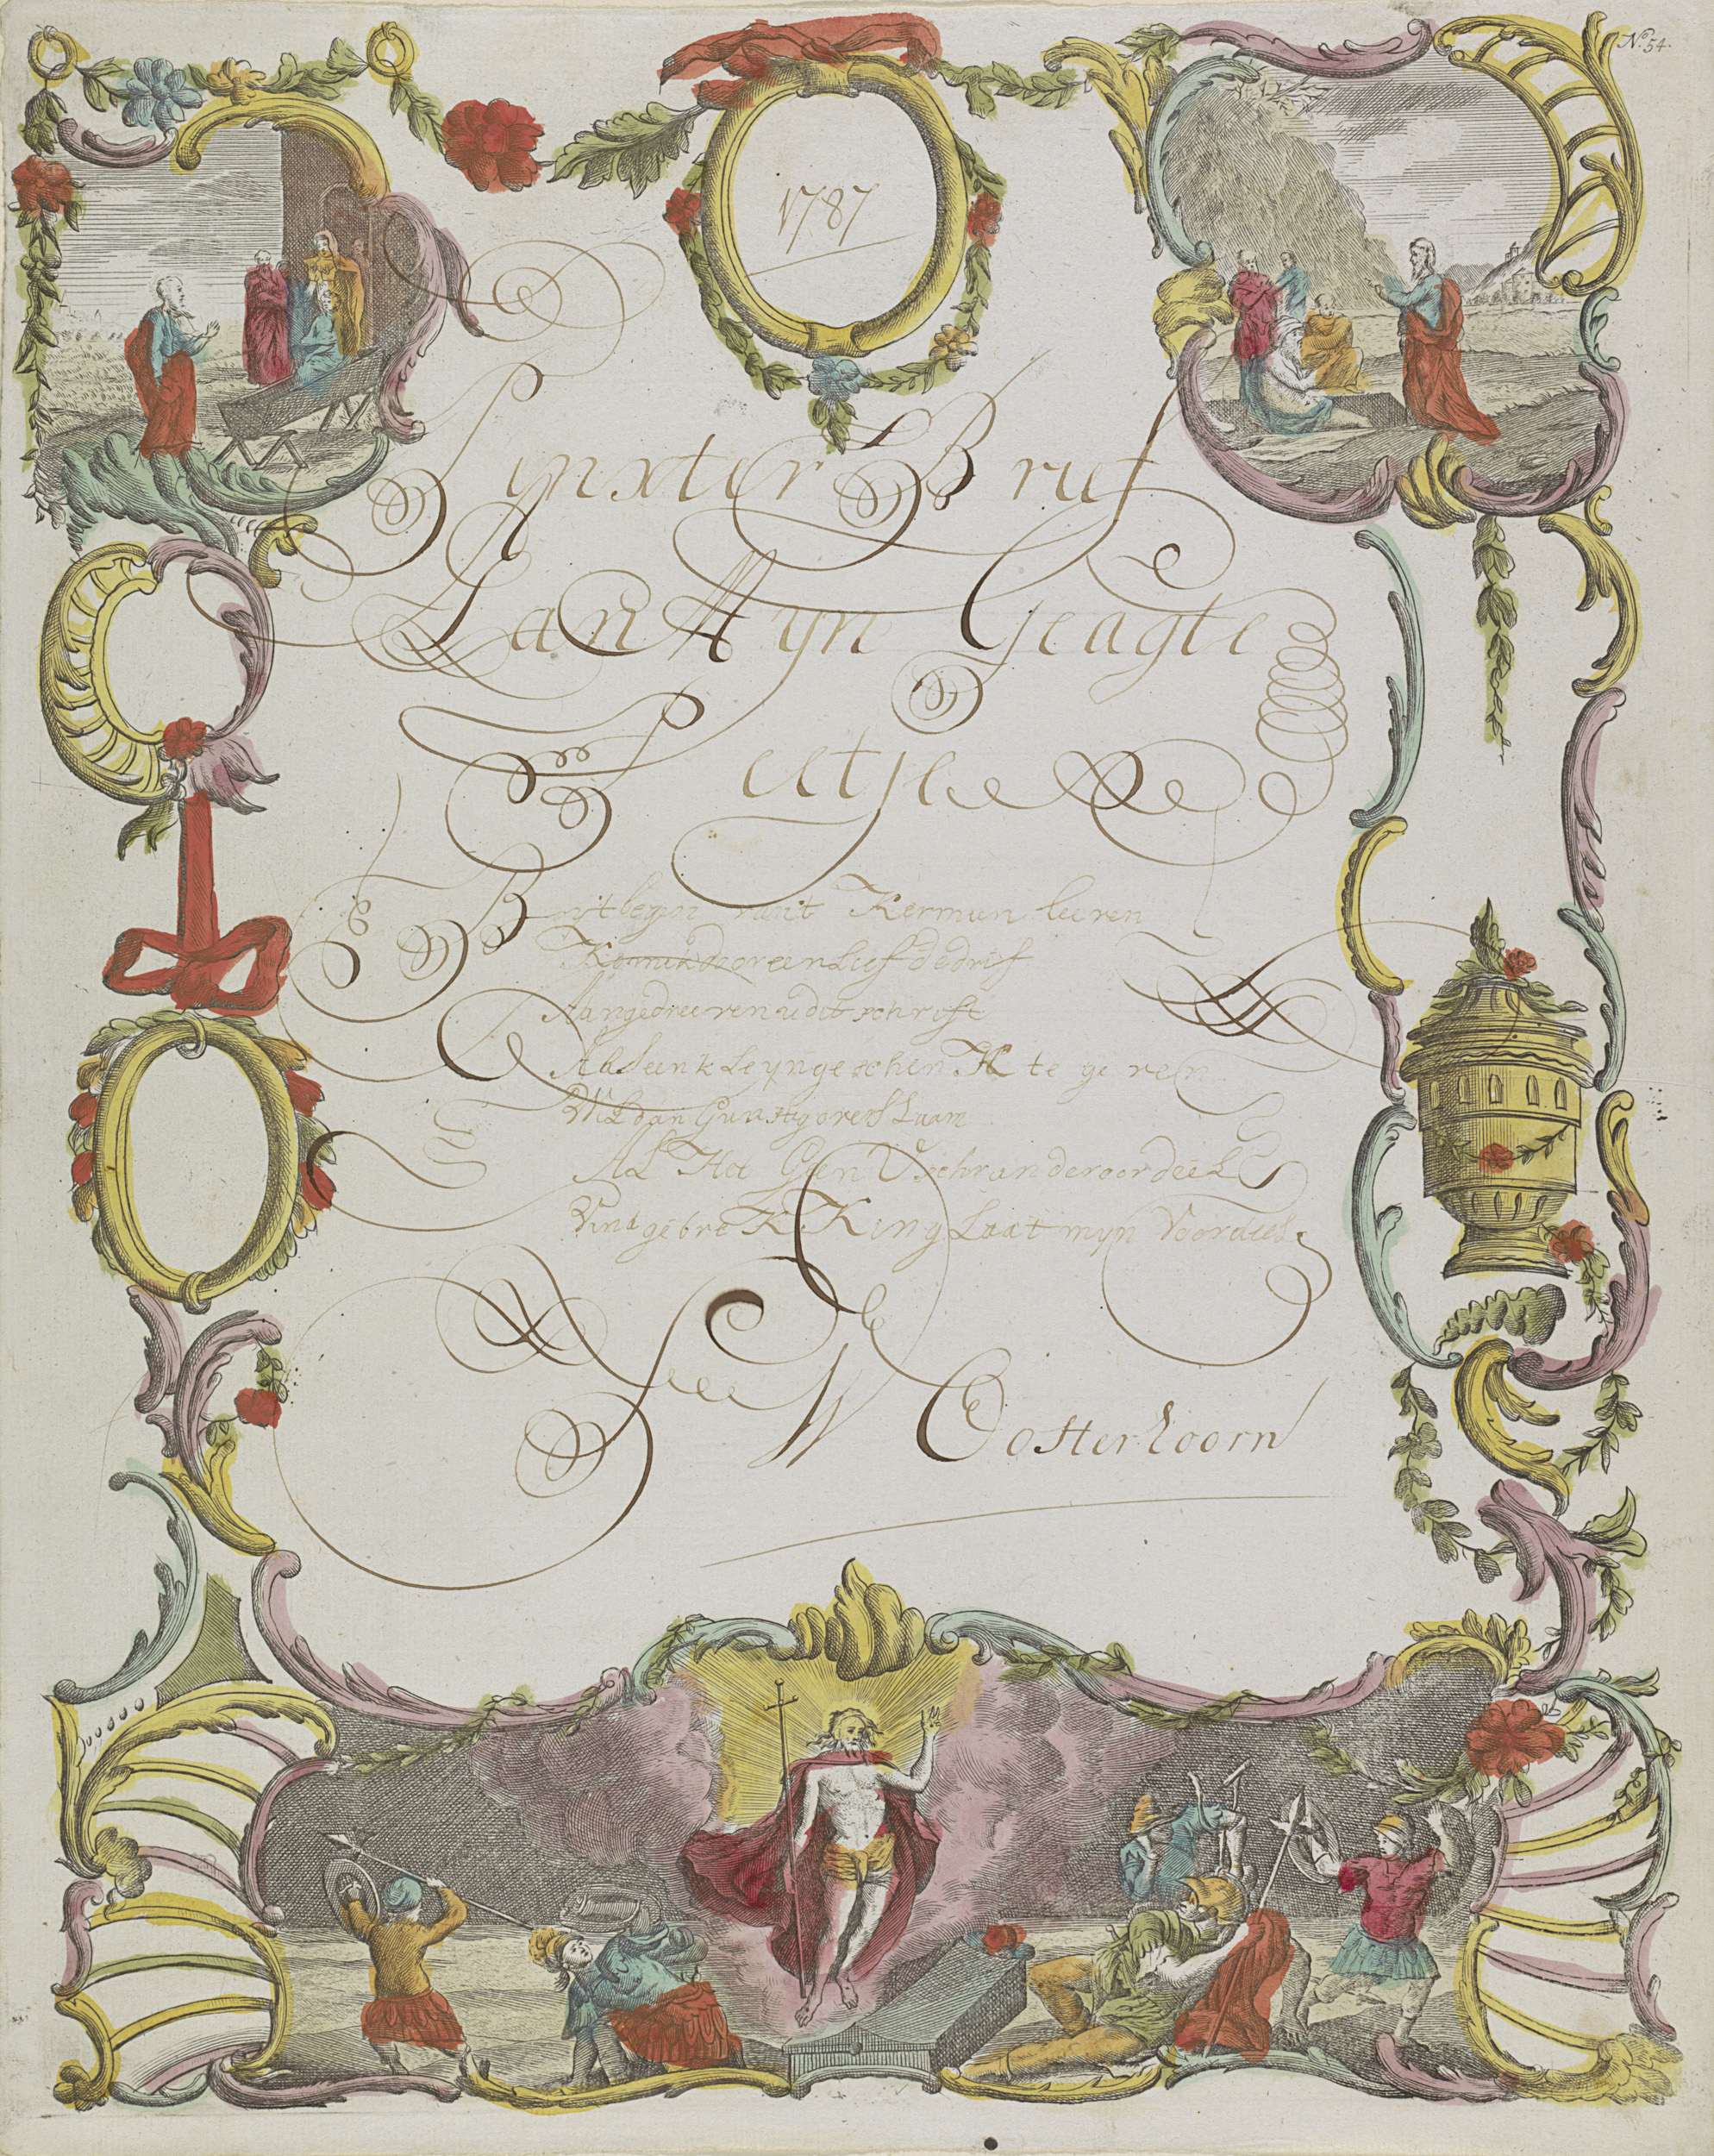 N.º 54.
1787
Pynxter Brief
Aan Myn Geagte
Peetje
Byt begin vant Kermun leeren
Kom ik door een lief dedrif
Aangedreeven u dit schrift
Als een kleyn geschenk te geven
Wil dan Gunstig
Al Het Geen U schrander oordeel
Vind gebrekking Laat myn Voordeel
W Oosterhoorn